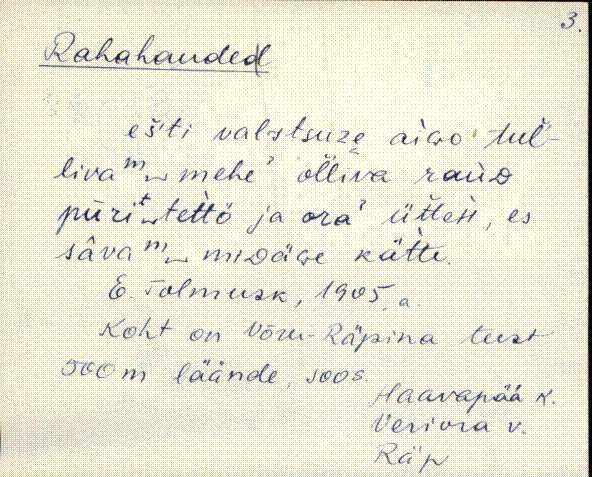 3.
Rahahauded
ešti valītsuze aiᴳo tuľ-
livaᵐ‿ mehe' õlliva raùᴅ
püriᵗ‿tettö ja ora' üťtèн, es
sâvaᵐ‿ miᴅäɢe kätte.
E. Tolmusk, 1905. a.
Koht on Võru-Räpina teest
500m läände, soos.
Haavapää k.
Veriora v.
Räp